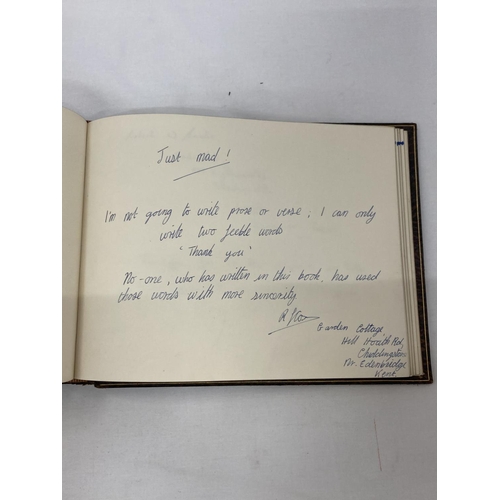 Just mad!
I'm not going to write prose or verse; I can only
write two feeble words
"Thank you"
No-one, who has written in this book, has used
those words with more sincerity
Garden Cottage,
Hill Hoath Rd,
Chiddingstone
Nr. Edenbridge
Kent.